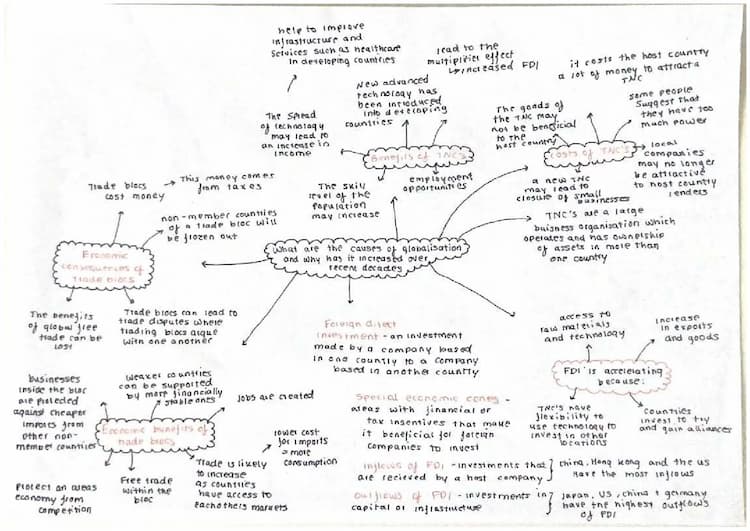 help to improve
infrastructure and
services such as healthcare
in developing countries
lead to the
multiplier effect
↳ increased FDI
it costs the host country
a lot of money to attract a
TNC
New advanced
technology has
been introduced
into developing
countries
The goods of
the TNC may
not be beneficial
to the
host country
some people
suggest that
they have too
much power
The spread
of technology
may lead to
an increase in
income
Benefits of TNC's
Costs of TNC's
local
companies
may no longer
be attractive
to host country
lenders
The skill
level of the
population
may increase
employment
opportunities
a new TNC
may lead to
closure of small
businesses
Trade blocs
cost money
This money comes
from taxes
non-member countries
of a trade bloc will
be frozen out
TNC's are a large
buisness organisation which
operates and has ownership
of assets in more than
one country
Economic
consequences of
trade blocs
What are the causes of globalisation
and why has it increased over
recent decades
The benefits
of global free
trade can be
lost
Trade blocs can lead to
trade disputes where
trading blocs argue
with one another
Foreign direct
investment - an investment
made by a company based
in one country to a company
based in another country
access to
raw materials
and technology
increase
in exports
and goods
FDI is accelerating
because:
TNC's have
flexibility to
use technology to
invest in other
locations
Countries
invest to try
and gain alliances
businesses
inside the bloc
are protected
against cheaper
imports from
other non-
member countries
Weaker countries
can be supported
by more financially
stable ones
Jobs are created
Economic benefits of
trade blocs
lower cost
for imports
= more
consumption
Protect an areas
economy from
competition
Free trade
within the
bloc
Trade is likely
to increase
as countries
have access to
eachothers markets
Special economic zones -
areas with financial or
tax incentives that make
it beneficial for foreign
companies to invest
inflows of FDI - investments that
are recieved by a host company
China, Hong Kong and the US
have the most inflows
Outflows of FDI - investments in
capital or infrastructure
Japan, US, China & germany
have the highest outflows
of FDI